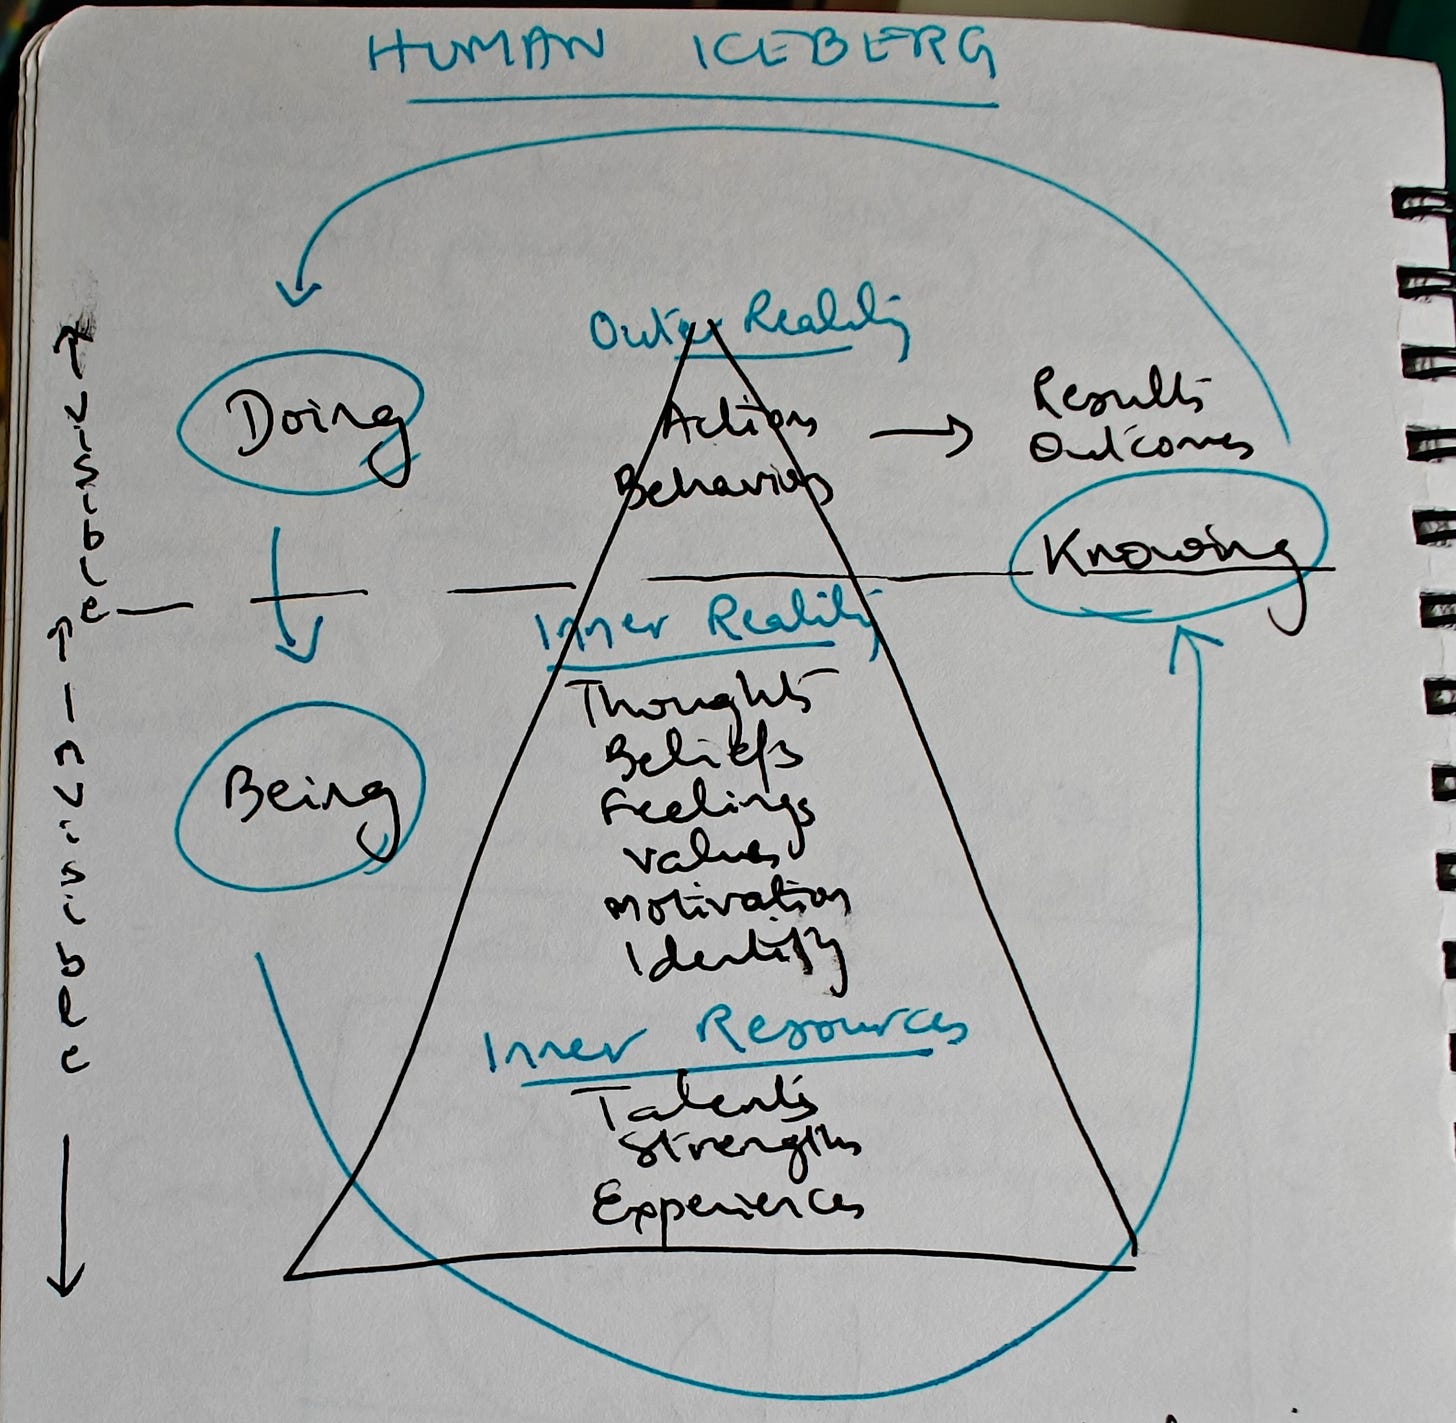 HUMAN ICEBERG
Outer Reality
Doing
Actions
Behaviors
Results
Outcomes
Knowing
Visible
Inner Reality
Thoughts
Beliefs
Feelings
Values
Motivation
Identity
Being
Invisible
Inner Resources
Talents
Strengths
Experiences